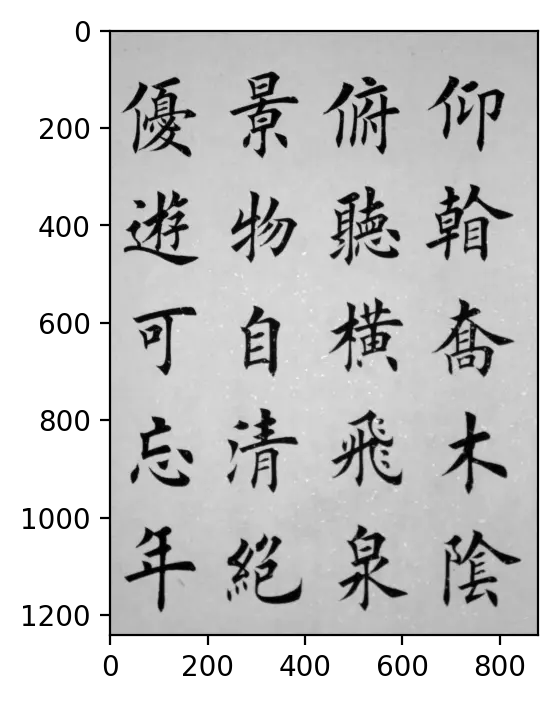 仰喬木陰
俯聽橫飛泉
景物自清絕
優遊可忘年
0
200
400
600
800
1000
1200
0 200 400 600 800